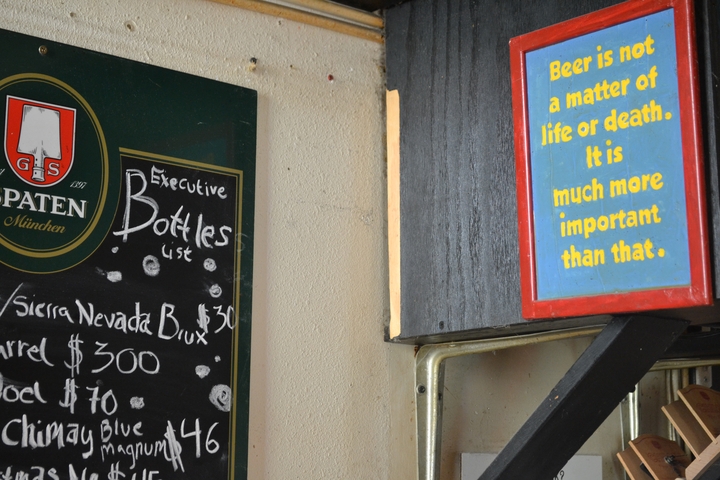 G S
1397
SPATEN
München
Executive
Bottles
List
/Sierra Nevada Brux $30
rrel $300
oel $70
Chimay Blue magnum $46
Beer is not
a matter of
life or death.
It is
much more
important
than that.